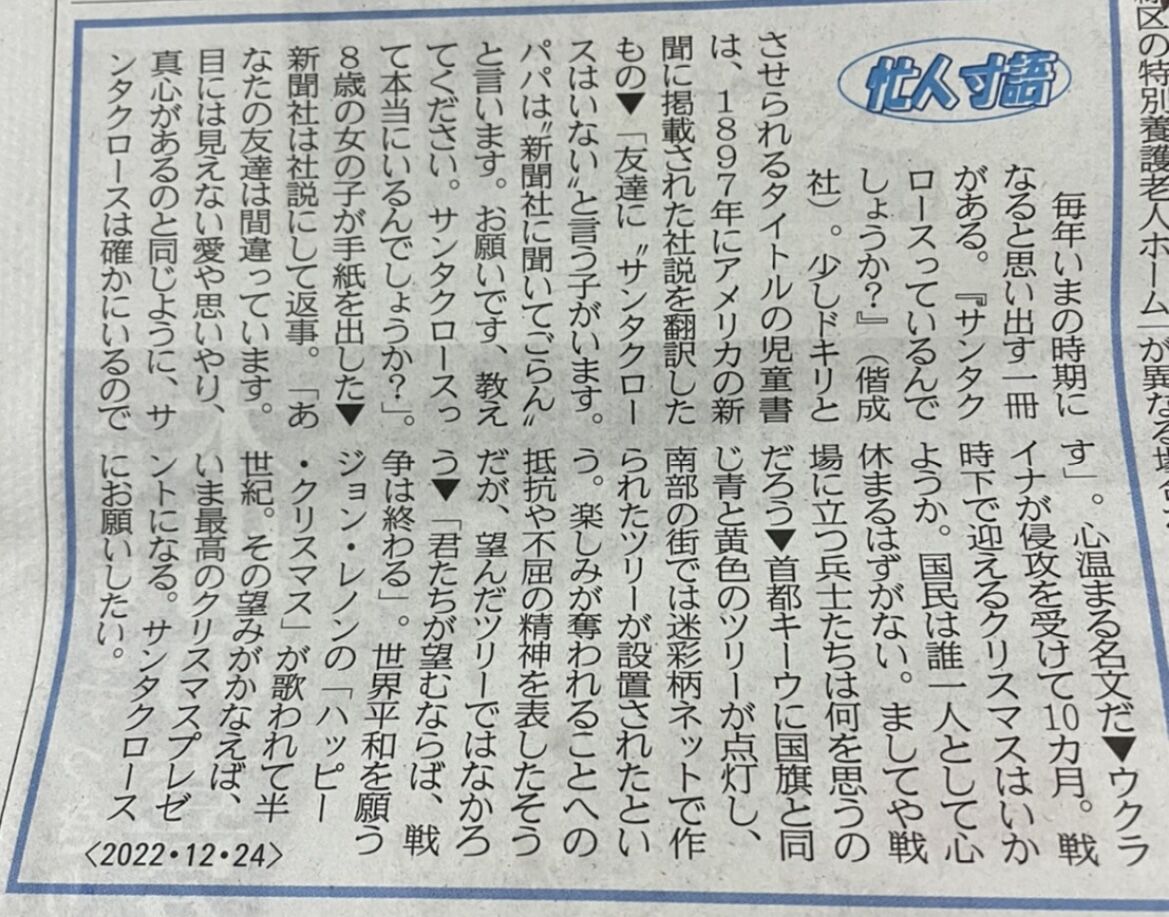 忙人寸語
毎年いまの時期に
なると思い出す一冊
がある。『サンタク
ロースっているんで
しょうか?』(偕成
社)。少しドキリと
させられるタイトルの児童書
は、1897年にアメリカの新
聞に掲載された社説を翻訳した
もの▼「友達に〝サンタクロー
スはいない〟と言う子がいます。
パパは〝新聞社に聞いてごらん〟
と言います。お願いです、教え
てください。サンタクロースっ
て本当にいるんでしょうか?」。
8歳の女の子が手紙を出した▼
新聞社は社説にして返事。「あ
なたの友達は間違っています。
目には見えない愛や思いやり、
真心があるのと同じように、サ
ンタクロースは確かにいるので
す」。心温まる名文だ▼ウクラ
イナが侵攻を受けて10カ月。戦
時下で迎えるクリスマスはいか
ようか。国民は誰一人として心
休まるはずがない。ましてや戦
場に立つ兵士たちは何を思うの
だろう▼首都キーウに国旗と同
じ青と黄色のツリーが点灯し、
南部の街では迷彩柄ネットで作
られたツリーが設置されたとい
う。楽しみが奪われることへの
抵抗や不屈の精神を表したそう
だが、望んだツリーではなかろ
う▼「君たちが望むならば、戦
争は終わる」。世界平和を願う
ジョン・レノンの「ハッピー
・クリスマス」が歌われて半
世紀。その望みがかなえば、
いま最高のクリスマスプレゼ
ントになる。サンタクロース
にお願いしたい。
〈2022・12・24〉
区の特別養護老人ホーム」が異なる場合